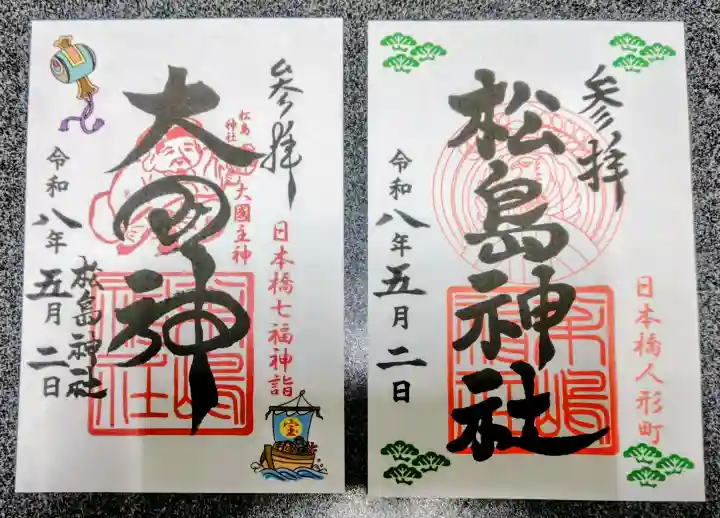 参拝
松島神社
大國主神
大国神
日本橋七福神詣
令和八年五月二日
松島神社
宝
参拝
松島神社
日本橋人形町
令和八年五月二日